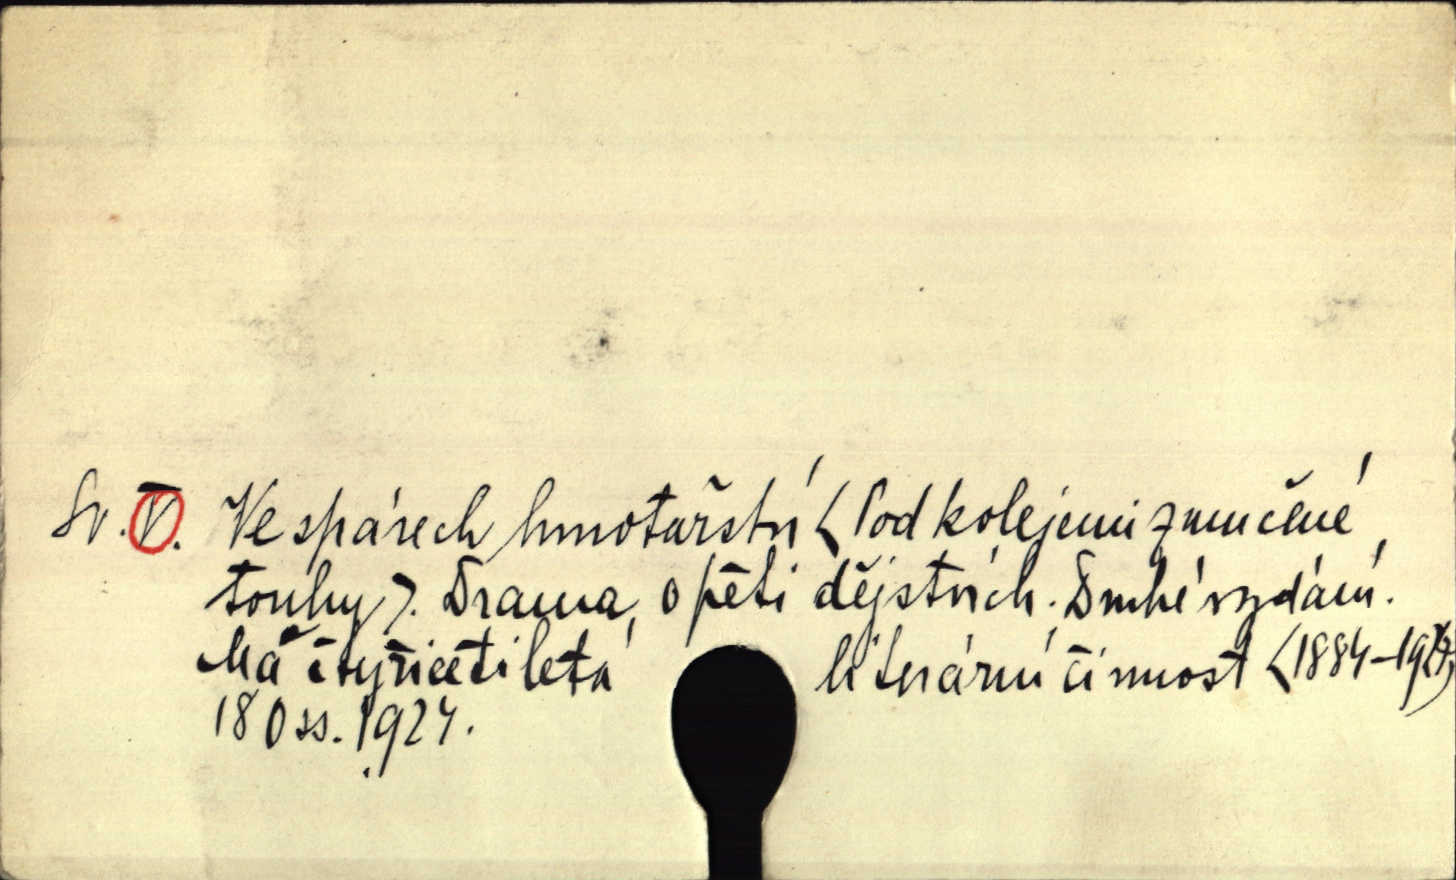 Sv. V. Ve spárech hmotařství (Pod kolejemi zmučené
touhy). Drama o pěti dějstvích. Druhé vydání.
Má čtyřicetiletá literární činnost (1884-1924)
180 ss. 1924.